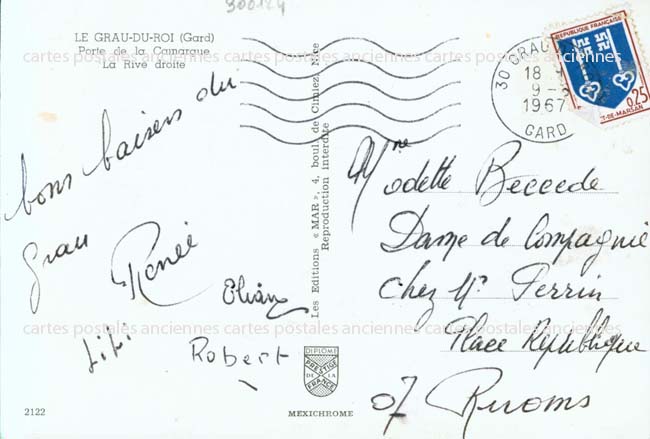 300124
LE GRAU-DU-ROI (Gard)
Porte de la Camargue
La Rive droite
bons baisers du
Grau
Renée
Lili
Robert
2122
Les Editions « MAR », 4, boul. de Cimiez, Nice
Reproduction interdite
DIPLOME
PRESTIGE
DE LA
FRANCE
MEXICHROME
30 GRAU
18
9-
1967
GARD
REPUBLIQUE FRANÇAISE
0,25
MT-DE-MARSAN
Mme
Odette Beccede
Dame de Compagnie
chez Mr Perrin
Place République
07 Ruoms
cartes postales anciennes cartes postales anciennes cartes postales anciennes
cartes postales anciennes cartes postales anciennes cartes postales anciennes